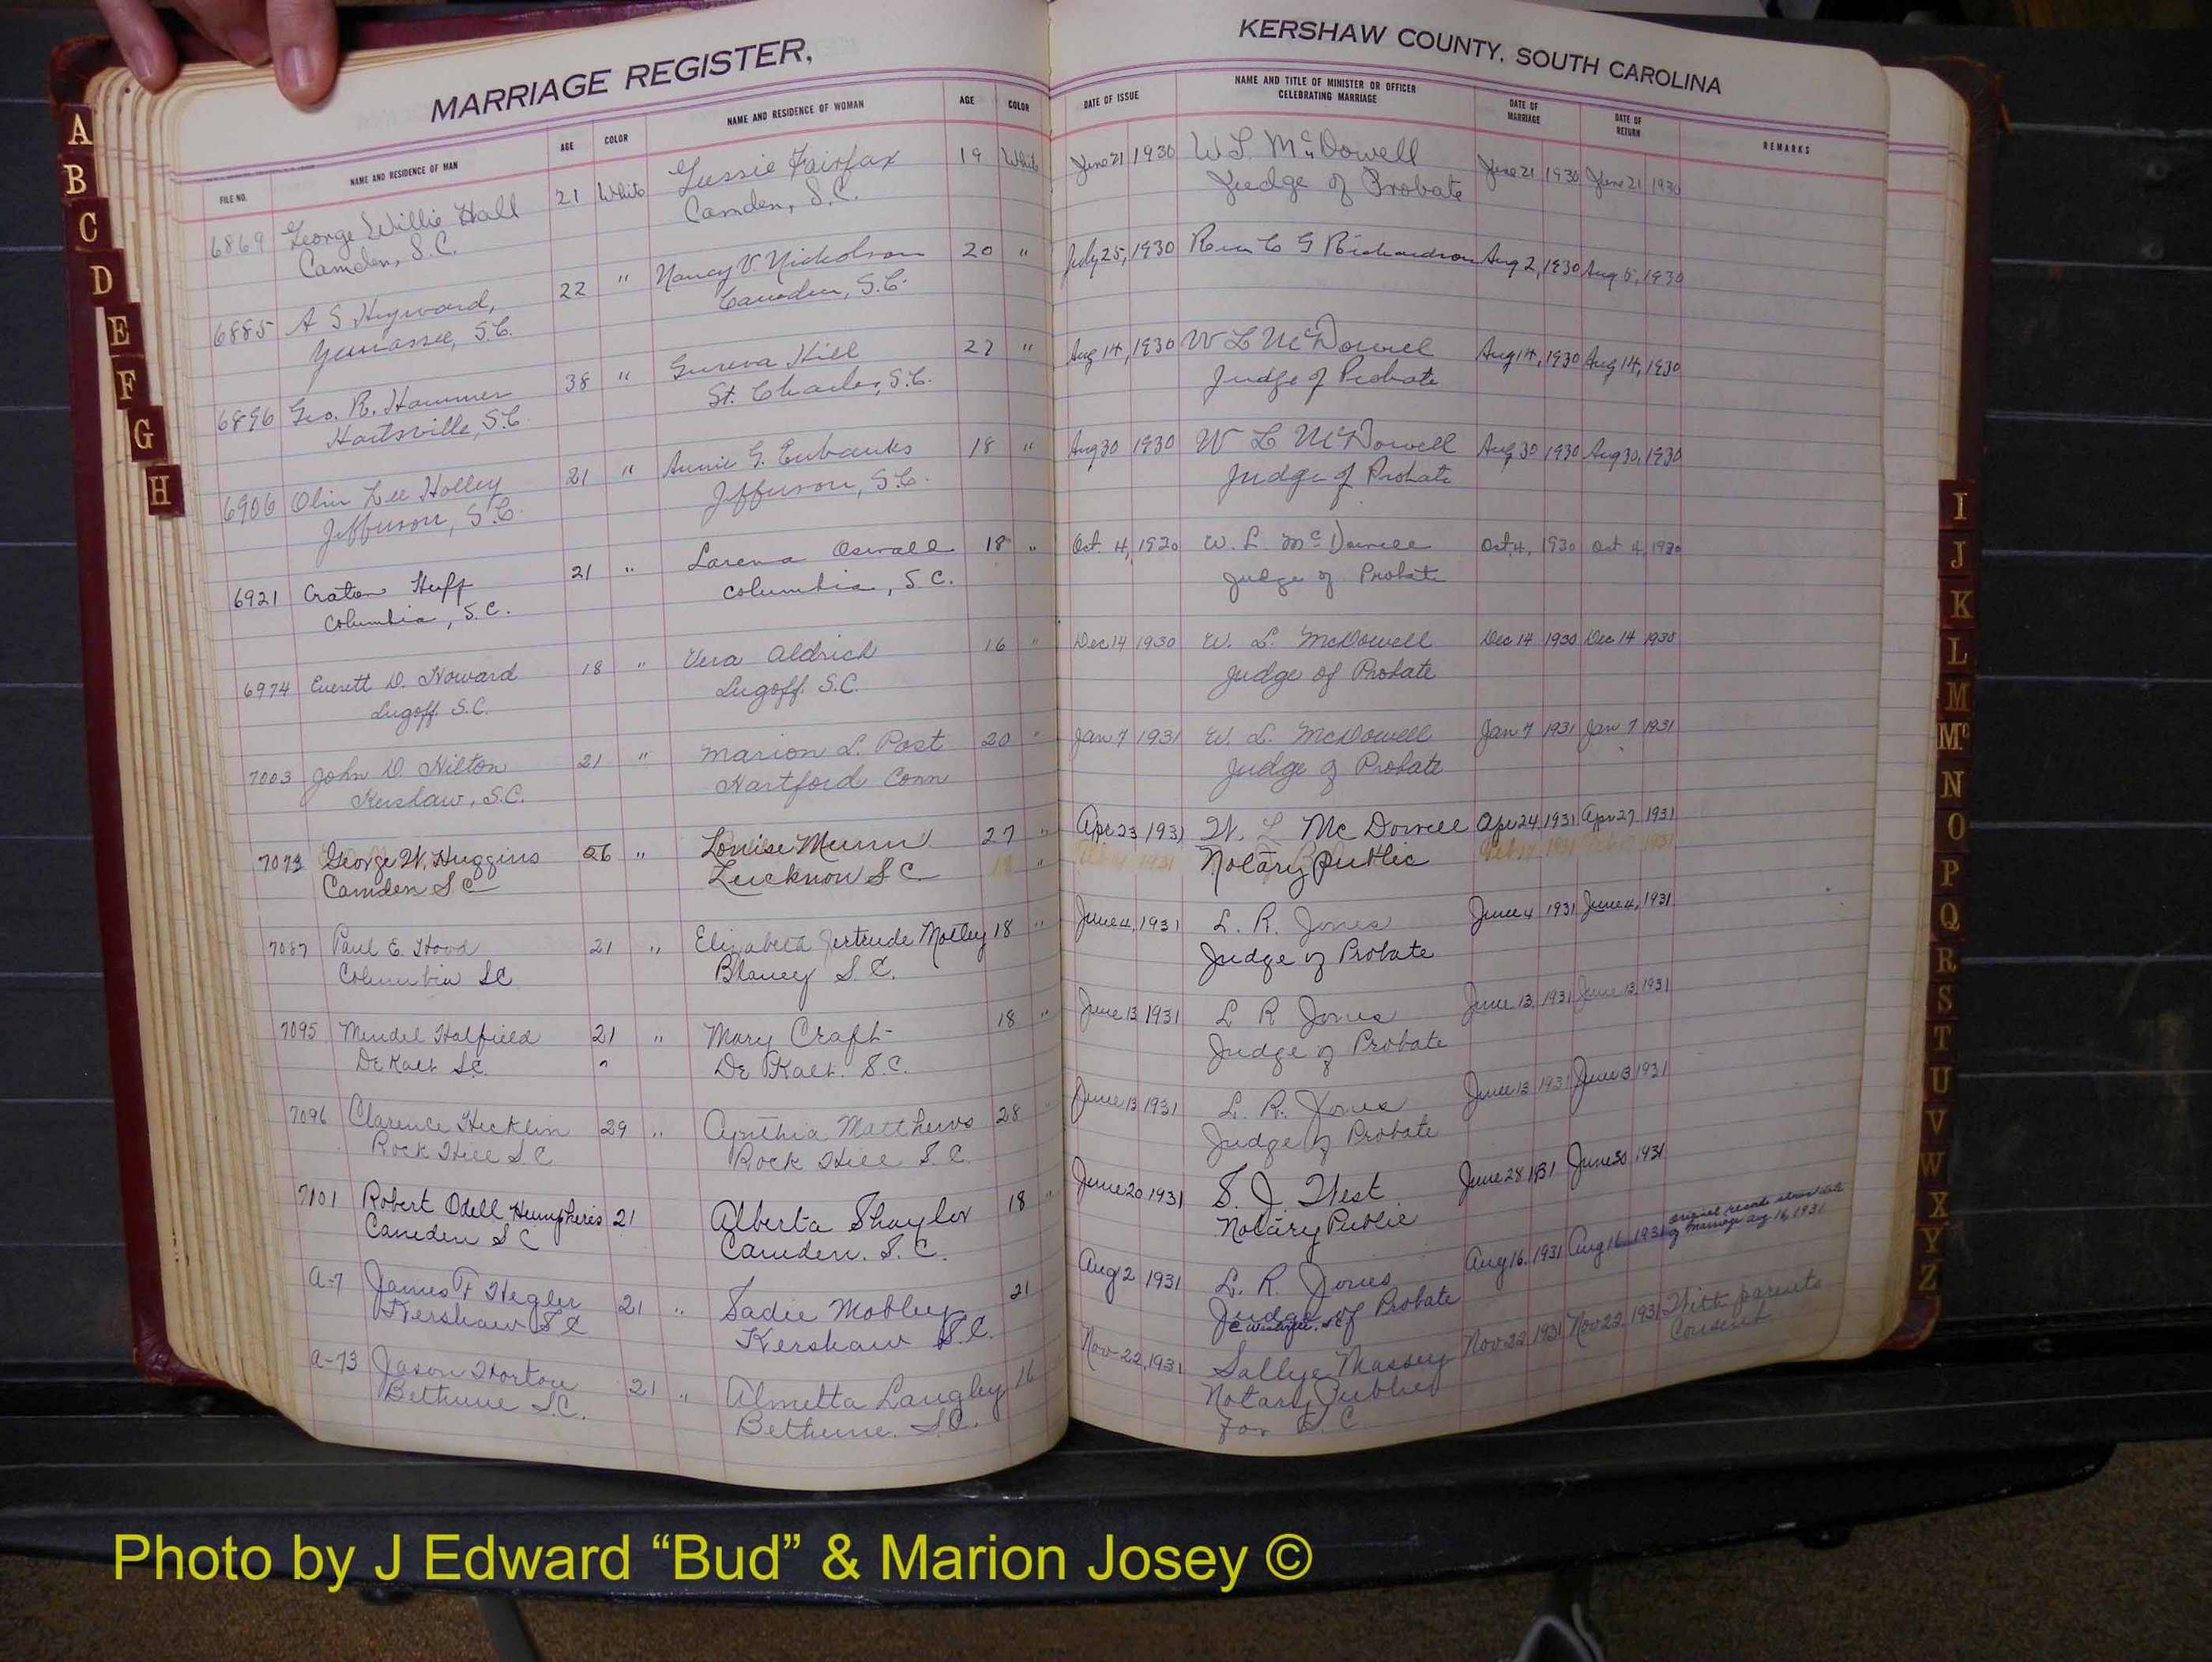 MARRIAGE REGISTER,
FILE NO. NAME AND RESIDENCE OF MAN AGE COLOR NAME AND RESIDENCE OF WOMAN AGE COLOR
6869 George Willie Hall 21 White Gussie Fairfax 19 White
Camden, S.C. Camden, S.C.
6885 A S Heyward, 22 " Nancy V. Nickolson 20 "
Yemassee, S.C. Camden, S.C.
6896 Geo. R. Hammer 38 " Hill 27 "
Hartsville, S.C. St. Charles, S.C.
6906 Olin Lee Holley 21 " Annie G. Eubanks 18 "
Jefferson, S.C. Jefferson, S.C.
6921 Craton Huff 21 " Larena Oswald 18 "
Columbia, S.C. Columbia, S.C.
6974 Everett D. Howard 18 " Vera Aldrich 16 "
Lugoff S.C. Lugoff S.C.
7003 John D. Hilton 21 " Marion L. Post 20 "
Kershaw, S.C. Hartford Conn
7073 George W. Huggins 26 " Louise Munn 27 "
Camden S C Lucknow S C 18 "
7087 Paul E. Hood 21 " Elizabeth Gertrude Motley 18 "
Columbia SC Blaney S. C.
7095 Mendel Halfield 21 " Mary Craft 18 "
De Kalb S.C. " De Kalb. S.C.
7096 Clarence Hicklin 29 " Cynthia Matthews 28 "
Rock Hill S C Rock Hill S. C.
7101 Robert Odell Humpheris 21 Alberta Shaylor 18 "
Camden S C Camden. S. C.
A-7 James F Hegler 21 " Sadie Mobley 21
Kershaw S C Kershaw S.C.
A-73 Jason Horton 21 " Almetta Langley 16
Bethune S.C. Bethune. S.C.
KERSHAW COUNTY, SOUTH CAROLINA
DATE OF ISSUE NAME AND TITLE OF MINISTER OR OFFICER CELEBRATING MARRIAGE DATE OF MARRIAGE DATE OF RETURN REMARKS
June 21 1930 W L McDowell June 21 1930 June 21 1930
Judge of Probate
July 25, 1930 Rev C G Richardson Aug 2, 1930 Aug 5, 1930
Aug 14, 1930 W L McDowell Aug 14, 1930 Aug 14, 1930
Judge of Probate
Aug 30 1930 W L McDowell Aug 30 1930 Aug 30, 1930
Judge of Probate
Oct. 4, 1930 W. L. McDowell Oct 4, 1930 Oct 4, 1930
Judge of Probate
Dec 14 1930 W. L. McDowell Dec 14 1930 Dec 14 1930
Judge of Probate
Jan 7 1931 W. L. McDowell Jan 7 1931 Jan 7 1931
Judge of Probate
Apr 23 1931 W. L McDowell Apr 24 1931 Apr 27 1931
1931 Notary Public 1931 1931
June 4, 1931 L. R. Jones June 4 1931 June 4, 1931
Judge of Probate
June 13 1931 L R Jones June 13, 1931 June 13, 1931
Judge of Probate
June 13 1931 L. R. Jones June 13 1931 June 13 1931
Judge of Probate
June 20 1931 S. J. West June 28 1931 June 30 1931
Notary Public
Aug 2 1931 L. R. Jones Aug 16. 1931 Aug 16 1931 original records shows date of marriage aug 16, 1931
Judge of Probate
Nov-22, 1931 Sallye Massey Nov-22, 1931 Nov 22, 1931 With parents consent
Notary Public
for S. C.
A
B
C
D
E
F
G
H
I
J
K
L
M
Mc
N
O
P
Q
R
S
T
U
V
W
X
Y
Z
Photo by J Edward “Bud” & Marion Josey ©